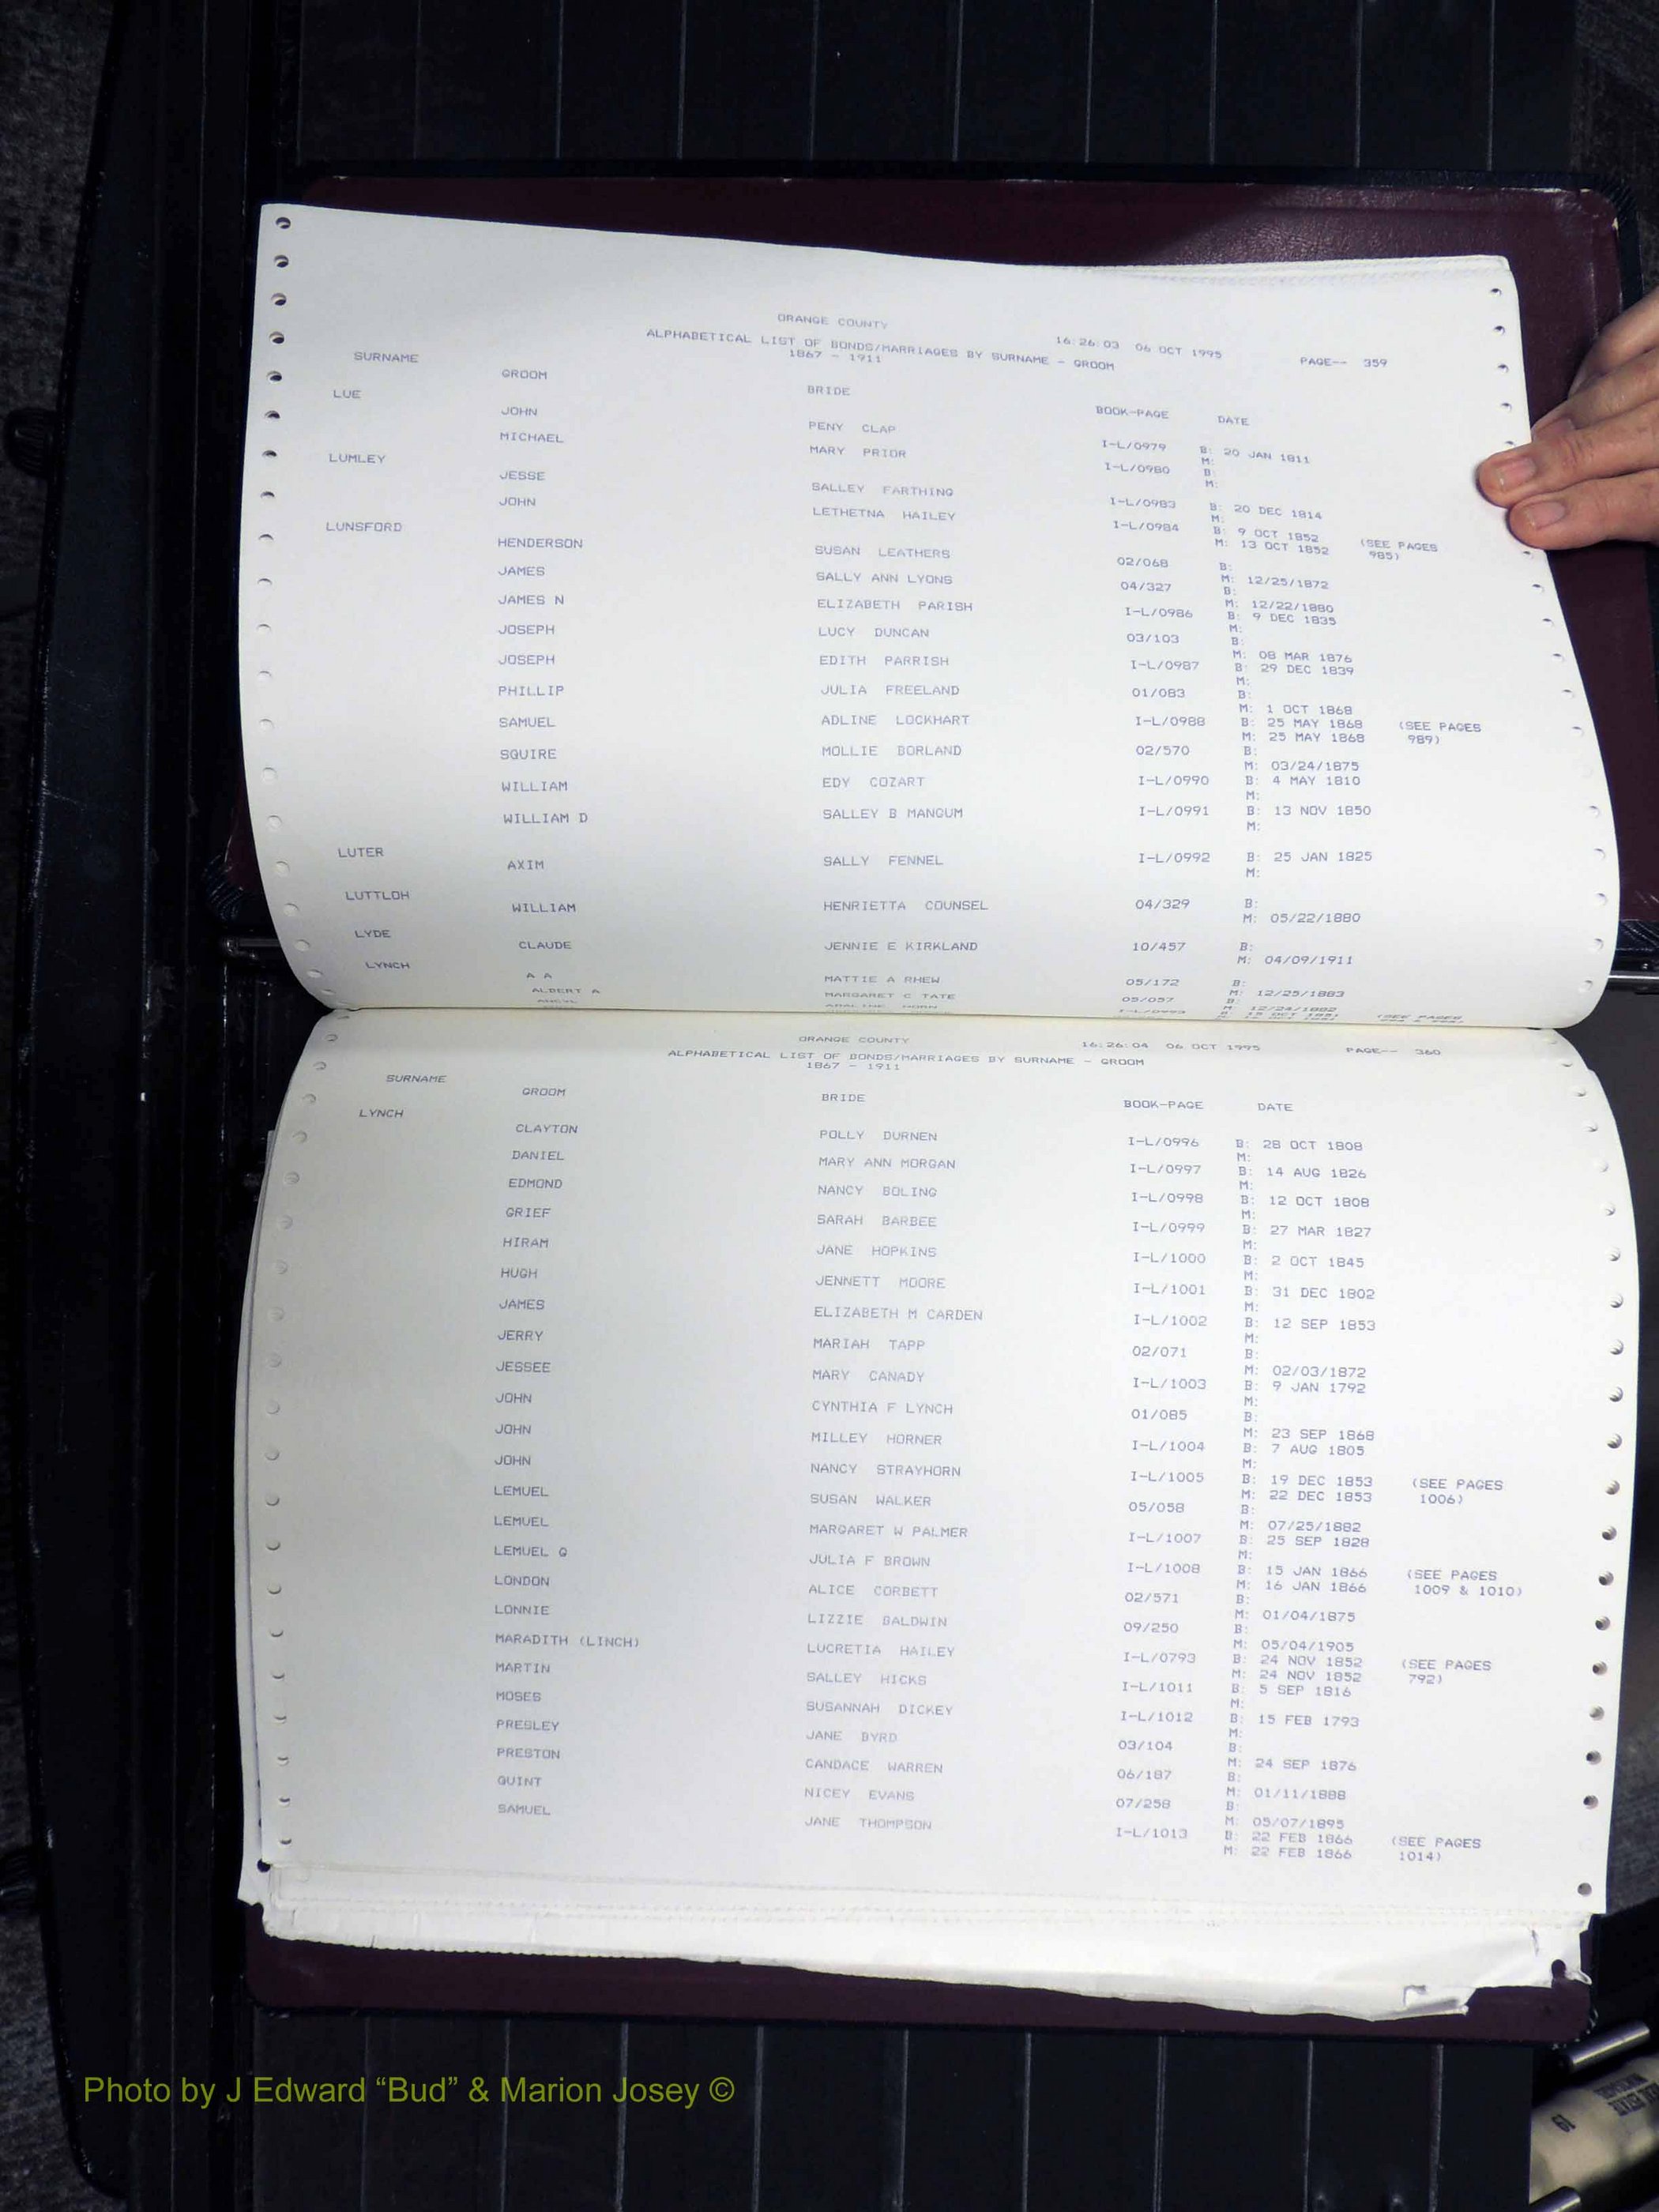 ORANGE COUNTY
ALPHABETICAL LIST OF BONDS/MARRIAGES BY SURNAME - GROOM 16:26:03 06 OCT 1995 PAGE-- 359
1867 - 1911
SURNAME GROOM BRIDE BOOK-PAGE DATE
LUE
JOHN PENY CLAP I-L/0979 B: 20 JAN 1811
M:
MICHAEL MARY PRIOR I-L/0980 B:
M:
LUMLEY
JESSE SALLEY FARTHING I-L/0983 B: 20 DEC 1814
M:
JOHN LETHETNA HAILEY I-L/0984 B: 9 OCT 1852 (SEE PAGES
M: 13 OCT 1852 985)
LUNSFORD
HENDERSON SUSAN LEATHERS 02/068 B:
M: 12/25/1872
JAMES SALLY ANN LYONS 04/327 B:
M: 12/22/1880
JAMES N ELIZABETH PARISH I-L/0986 B: 9 DEC 1835
M:
JOSEPH LUCY DUNCAN 03/103 B:
M: 08 MAR 1876
JOSEPH EDITH PARRISH I-L/0987 B: 29 DEC 1839
M:
PHILLIP JULIA FREELAND 01/083 B:
M: 1 OCT 1868
SAMUEL ADLINE LOCKHART I-L/0988 B: 25 MAY 1868 (SEE PAGES
M: 25 MAY 1868 989)
SQUIRE MOLLIE BORLAND 02/570 B:
M: 03/24/1875
WILLIAM EDY COZART I-L/0990 B: 4 MAY 1810
M:
WILLIAM D SALLEY B MANGUM I-L/0991 B: 13 NOV 1850
M:
LUTER
AXIM SALLY FENNEL I-L/0992 B: 25 JAN 1825
M:
LUTTLOH
WILLIAM HENRIETTA COUNSEL 04/329 B:
M: 05/22/1880
LYDE
CLAUDE JENNIE E KIRKLAND 10/457 B:
M: 04/09/1911
LYNCH
A A MATTIE A RHEW 05/172 B:
M: 12/25/1883
ALBERT A MARGARET C TATE 05/057 B:
M: 12/24/1882
ORANGE COUNTY
ALPHABETICAL LIST OF BONDS/MARRIAGES BY SURNAME - GROOM 16:26:04 06 OCT 1995 PAGE-- 360
1867 - 1911
SURNAME GROOM BRIDE BOOK-PAGE DATE
LYNCH
CLAYTON POLLY DURNEN I-L/0996 B: 28 OCT 1808
M:
DANIEL MARY ANN MORGAN I-L/0997 B: 14 AUG 1826
M:
EDMOND NANCY BOLING I-L/0998 B: 12 OCT 1808
M:
GRIEF SARAH BARBEE I-L/0999 B: 27 MAR 1827
M:
HIRAM JANE HOPKINS I-L/1000 B: 2 OCT 1845
M:
HUGH JENNETT MOORE I-L/1001 B: 31 DEC 1802
M:
JAMES ELIZABETH M CARDEN I-L/1002 B: 12 SEP 1853
M:
JERRY MARIAH TAPP 02/071 B:
M: 02/03/1872
JESSEE MARY CANADY I-L/1003 B: 9 JAN 1792
M:
JOHN CYNTHIA F LYNCH 01/085 B:
M: 23 SEP 1868
JOHN MILLEY HORNER I-L/1004 B: 7 AUG 1805
M:
JOHN NANCY STRAYHORN I-L/1005 B: 19 DEC 1853 (SEE PAGES
M: 22 DEC 1853 1006)
LEMUEL SUSAN WALKER 05/058 B:
M: 07/25/1882
LEMUEL MARGARET W PALMER I-L/1007 B: 25 SEP 1828
M:
LEMUEL G JULIA F BROWN I-L/1008 B: 15 JAN 1866 (SEE PAGES
M: 16 JAN 1866 1009 & 1010)
LONDON ALICE CORBETT 02/571 B:
M: 01/04/1875
LONNIE LIZZIE BALDWIN 09/250 B:
M: 05/04/1905
MARADITH (LINCH) LUCRETIA HAILEY I-L/0793 B: 24 NOV 1852 (SEE PAGES
M: 24 NOV 1852 792)
MARTIN SALLEY HICKS I-L/1011 B: 5 SEP 1816
M:
MOSES SUSANNAH DICKEY I-L/1012 B: 15 FEB 1793
M:
PRESLEY JANE BYRD 03/104 B:
M: 24 SEP 1876
PRESTON CANDACE WARREN 06/187 B:
M: 01/11/1888
QUINT NICEY EVANS 07/258 B:
M: 05/07/1895
SAMUEL JANE THOMPSON I-L/1013 B: 22 FEB 1866 (SEE PAGES
M: 22 FEB 1866 1014)
Photo by J Edward “Bud” & Marion Josey ©